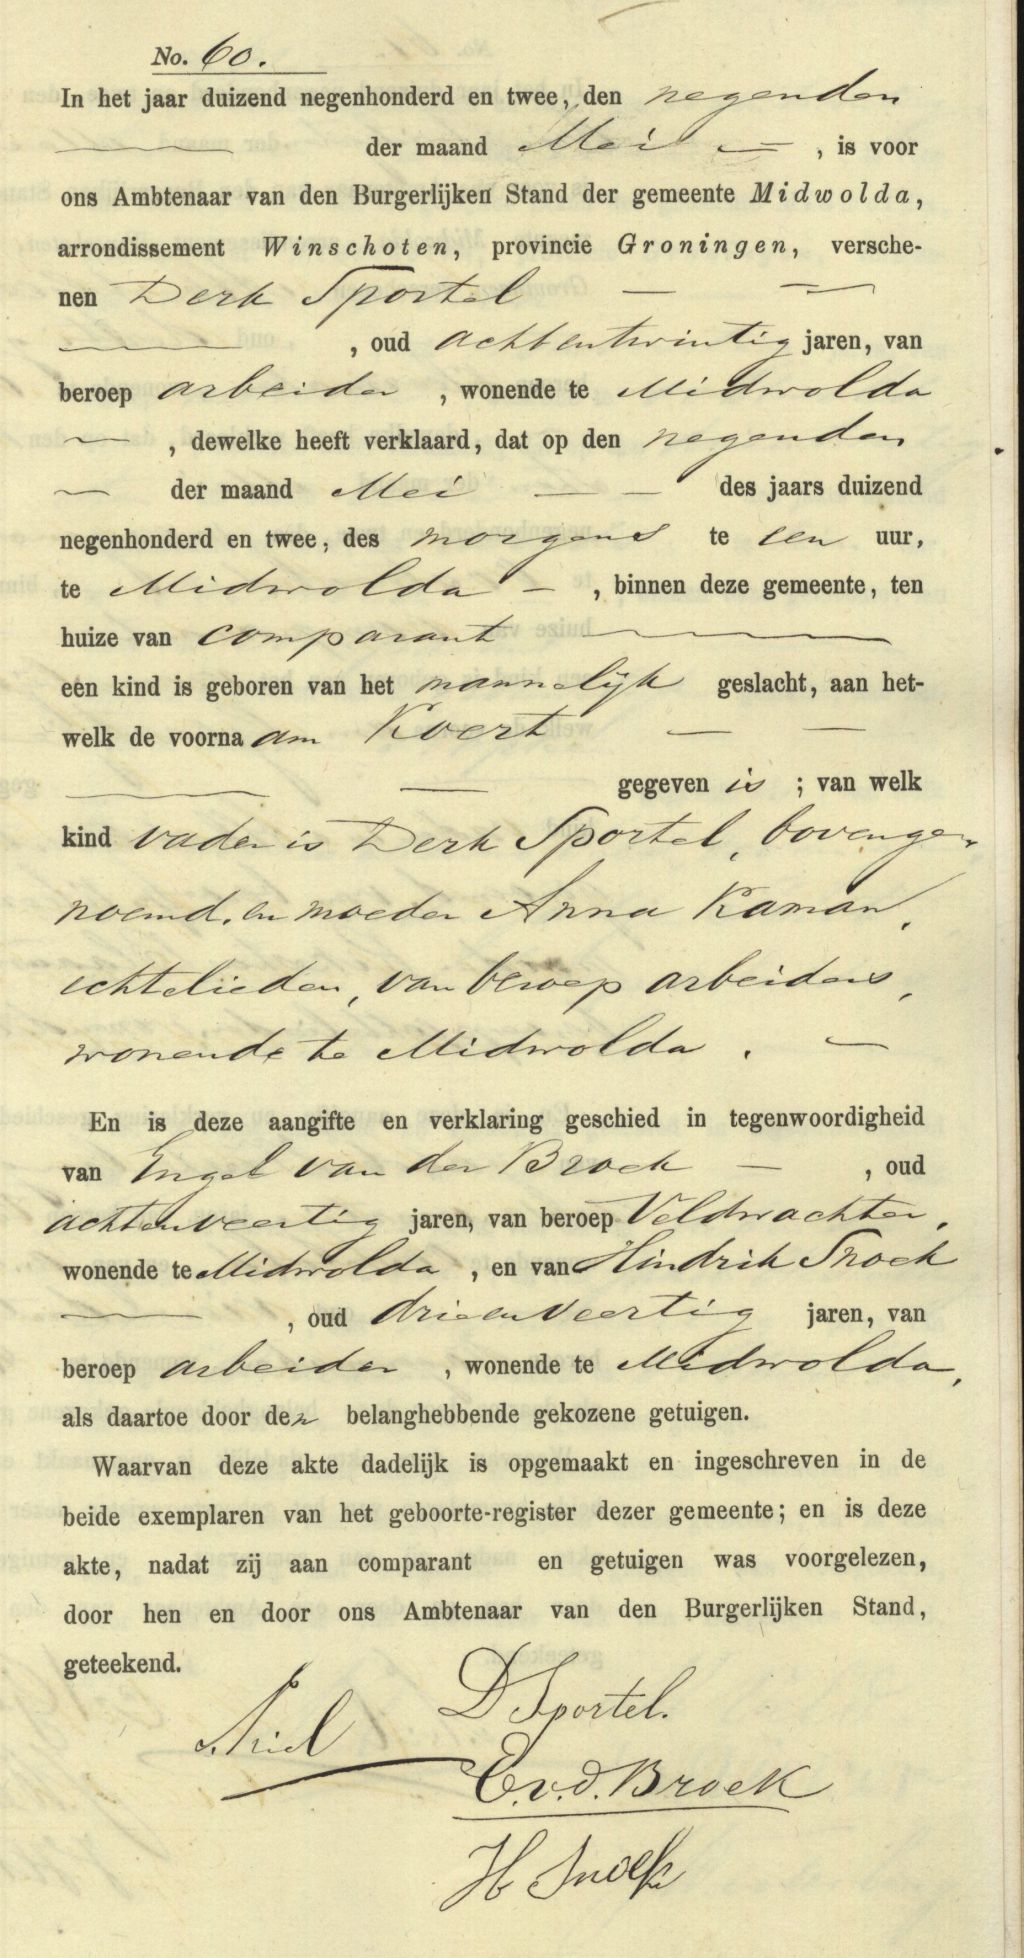 No. 60.
In het jaar duizend negenhonderd en twee, den negenden
der maand Mei, is voor
ons Ambtenaar van den Burgerlijken Stand der gemeente Midwolda,
arrondissement Winschoten, provincie Groningen, versche-
nen Derk Sportel
, oud achtentwintig jaren, van
beroep arbeider, wonende te Midwolda
, dewelke heeft verklaard, dat op den negenden
der maand Mei des jaars duizend
negenhonderd en twee, des morgens te een uur,
te Midwolda, binnen deze gemeente, ten
huize van comparant
een kind is geboren van het mannelijk geslacht, aan het-
welk de voornaam Koert
gegeven is; van welk
kind vader is Derk Sportel, bovenge-
noemd, en moeder Anna Kaman,
echtelieden, van beroep arbeiders,
wonende te Midwolda.
En is deze aangifte en verklaring geschied in tegenwoordigheid
van Engel van den Broek, oud
achtenveertig jaren, van beroep Veldwachter,
wonende te Midwolda, en van Hindrik Snoek
, oud drieenveertig jaren, van
beroep arbeider, wonende te Midwolda,
als daartoe door den belanghebbende gekozene getuigen.
Waarvan deze akte dadelijk is opgemaakt en ingeschreven in de
beide exemplaren van het geboorte-register dezer gemeente; en is deze
akte, nadat zij aan comparant en getuigen was voorgelezen,
door hen en door ons Ambtenaar van den Burgerlijken Stand,
geteekend.
D Sportel.
E.v.d. Broek
H Snoek